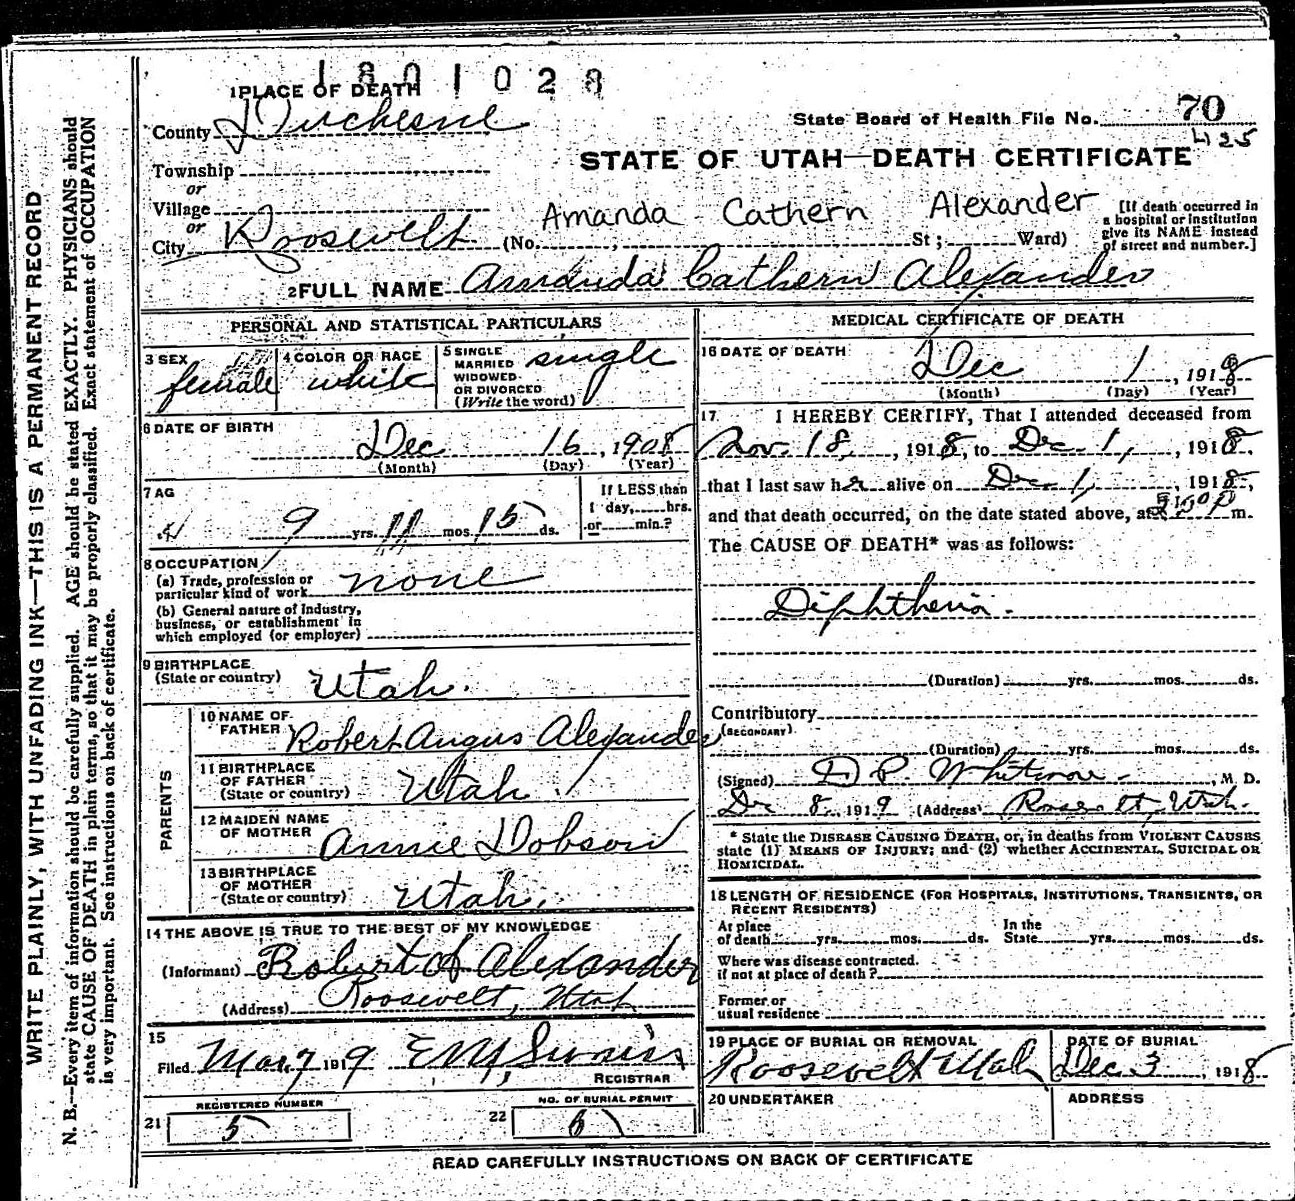 1801028
1 PLACE OF DEATH
County Duchesne
State Board of Health File No. 70
425
STATE OF UTAH—DEATH CERTIFICATE
Township
or
Village
or
City Roosevelt (No. St; Ward)
Amanda Cathern Alexander
[If death occurred in a hospital or institution give its NAME instead of street and number.]
2 FULL NAME Amanda Cathern Alexander
PERSONAL AND STATISTICAL PARTICULARS
3 SEX female
4 COLOR OR RACE white
5 SINGLE MARRIED WIDOWED OR DIVORCED (Write the word) single
6 DATE OF BIRTH Dec 16, 1908
(Month) (Day) (Year)
7 AG 9 yrs. 11 mos. 15 ds.
If LESS than 1 day, hrs. or min.?
8 OCCUPATION
(a) Trade, profession or particular kind of work none
(b) General nature of industry, business, or establishment in which employed (or employer)
9 BIRTHPLACE (State or country) Utah.
PARENTS
10 NAME OF FATHER Robert Angus Alexander
11 BIRTHPLACE OF FATHER (State or country) Utah.
12 MAIDEN NAME OF MOTHER Annie Dobson
13 BIRTHPLACE OF MOTHER (State or country) Utah.
14 THE ABOVE IS TRUE TO THE BEST OF MY KNOWLEDGE
(Informant) Robert A Alexander
(Address) Roosevelt, Utah
15
Filed Mar. 7 1919
REGISTRAR
REGISTERED NUMBER
21 5
NO. OF BURIAL PERMIT
22 6
MEDICAL CERTIFICATE OF DEATH
16 DATE OF DEATH Dec 1, 1918
(Month) (Day) (Year)
17 I HEREBY CERTIFY, That I attended deceased from
Nov. 18, 1918, to Dec. 1, 1918,
that I last saw her alive on Dec. 1, 1918,
and that death occurred, on the date stated above, at m.
The CAUSE OF DEATH* was as follows:
Diphtheria.
(Duration) yrs. mos. ds.
Contributory
(SECONDARY)
(Duration) yrs. mos. ds.
(Signed) D P. Whitmore M. D.
Dec 8, 1919 (Address) Roosevelt, Utah.
* State the DISEASE CAUSING DEATH, or, in deaths from VIOLENT CAUSES
state (1) MEANS OF INJURY; and (2) whether ACCIDENTAL, SUICIDAL OR
HOMICIDAL.
18 LENGTH OF RESIDENCE (FOR HOSPITALS, INSTITUTIONS, TRANSIENTS, OR
RECENT RESIDENTS)
At place of death yrs. mos. ds. In the State yrs. mos. ds.
Where was disease contracted.
if not at place of death?
Former or
usual residence
19 PLACE OF BURIAL OR REMOVAL
Roosevelt Utah
DATE OF BURIAL
Dec. 3, 1918
20 UNDERTAKER
ADDRESS
READ CAREFULLY INSTRUCTIONS ON BACK OF CERTIFICATE
WRITE PLAINLY, WITH UNFADING INK—THIS IS A PERMANENT RECORD
N. B.—Every item of information should be carefully supplied. AGE should be stated EXACTLY. PHYSICIANS should
state CAUSE OF DEATH in plain terms, so that it may be properly classified. Exact statement of OCCUPATION
is very important. See instructions on back of certificate.